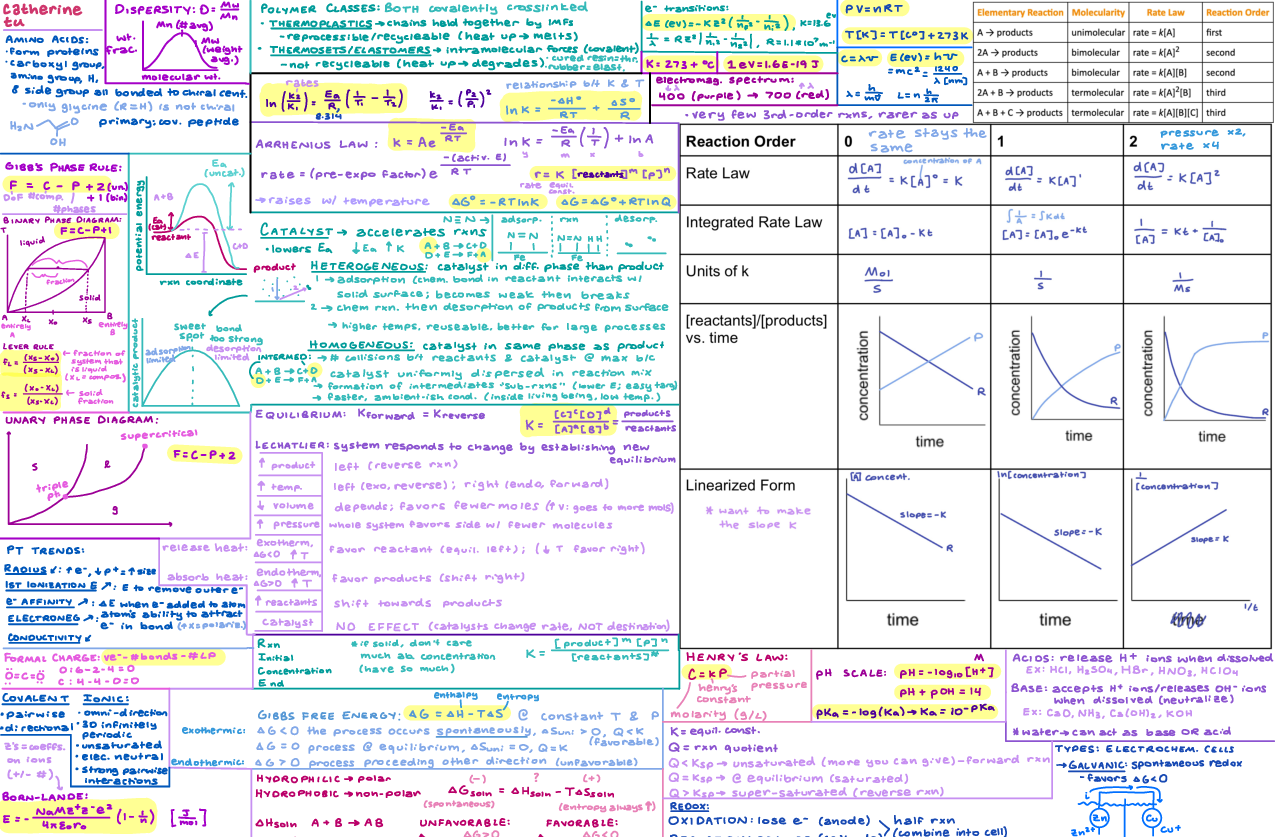 catherine
tu
AMINO ACIDS:
·form proteins
·carboxyl group,
amino group, H,
& side group all bonded to chiral cent.
-only glycine (R=H) is not chiral
H₂N
O
OH
primary: cov. peptide
DISPERSITY: D = Mw/Mn
Mn (# avg)
wt. frac.
Mw (weight avg.)
molecular wt.
POLYMER CLASSES: BOTH covalently crosslinked
·THERMOPLASTICS → chains held together by IMFs
-reprocessible/recycleable (heat up → melts)
·THERMOSETS/ELASTOMERS → intramolecular forces (covalent)
-not recycleable (heat up → degrades)
·cured resin=thr.
rubber=elast.
e⁻ transitions:
K = 273 + °C
1 eV = 1.6E-19 J
electromag. spectrum:
400 (purple) → 700 (red)
·very few 3rd-order rxns, rarer as up
PV=nRT
T[K] = T[C°] + 273K
c=λν
E(ev) = hν
=mc² = 1240/λ[nm]
λ = h/mv
L = n h/2π
Elementary Reaction Molecularity Rate Law Reaction Order
A → products unimolecular rate = k[A] first
2A → products bimolecular rate = k[A]² second
A + B → products bimolecular rate = k[A][B] second
2A + B → products termolecular rate = k[A]²[B] third
A + B + C → products termolecular rate = k[A][B][C] third
rates
ln(k₂/k₁) = Ea/R (1/T₁ - 1/T₂)
8.314
relationship b/t K & T
ln K = -ΔH°/RT + ΔS°/R
ARRHENIUS LAW: k = Ae^(-Ea/RT)
ln K = -Ea/R (1/T) + ln A
y m x b
rate = (pre-expo factor) e^(-(activ. E)/RT)
r = K [reactants]ᵐ [P]ⁿ
rate equil. const.
→ raises w/ temperature
ΔG° = -RTlnK
ΔG = ΔG° + RTlnQ
GIBB'S PHASE RULE:
F = C - P + 2 (un)
DoF #comp. / +1 (bin)
#phases
BINARY PHASE DIAGRAM:
T F=C-P+1
liquid
fraction
solid
A XL X₀ XS B
entirely A
entirely B
LEVER RULE
fL = (XS-X₀)/(XS-XL)
← fraction of system that is liquid
(XL = compos.)
fS = (X₀-XL)/(XS-XL)
← solid fraction
potential energy
Ea (uncat.)
A+B
Ea (cat)
reactant
ΔE
C+D
product
rxn coordinate
catalytic product
sweet spot
bond too strong
adsorption limited
desorption limited
CATALYST → accelerates rxns
·lowers Ea ↓Ea ↑K
A+B → C+D
D+E → F+A
N≡N → adsorp. rxn desorp.
N=N
N=N H H
Fe Fe
HETEROGENEOUS: catalyst in diff. phase than product
1 → adsorption (chem. bond in reactant interacts w/
solid surface; becomes weak then breaks
2 → chem rxn. then desorption of products from surface
→ higher temps, reuseable, better for large processes
HOMOGENEOUS: catalyst in same phase as product
INTERMED: → # collisions b/t reactants & catalyst @ max b/c
A+B → C+D
D+E → F+A
catalyst uniformly dispersed in reaction mix
→ formation of intermediates "sub-rxns" (lower E; easy targ)
→ faster, ambient-ish cond. (inside living being, low temp.)
UNARY PHASE DIAGRAM:
supercritical
S l
triple pt.
g
F=C-P+2
EQUILIBRIUM: Kforward = Kreverse
K = [C]ᶜ[D]ᵈ/[A]ᵃ[B]ᵇ = products/reactants
LECHATLIER: system responds to change by establishing new
equilibrium
↑ product left (reverse rxn)
↑ temp. left (exo, reverse); right (endo, forward)
↓ volume depends; favors fewer moles (↑v: goes to more mols)
↑ pressure whole system favors side w/ fewer molecules
release heat: exotherm, ΔG<0 ↑T favor reactant (equil. left); (↓ T favor right)
absorb heat: endotherm, ΔG>0 ↑T favor products (shift right)
↑ reactants shift towards products
catalyst NO EFFECT (catalysts change rate, NOT destination)
PT TRENDS:
RADIUS ↙: ↑e⁻, ↓p⁺ = ↑size
1ST IONIZATION E ↗: E to remove outer e⁻
e⁻ AFFINITY ↗: ΔE when e⁻ added to atom
ELECTRONEG ↗: atom's ability to attract
e⁻ in bond (↑x=polariz.)
CONDUCTIVITY ↙
Rxn
Initial
Concentration
End
*if solid, don't care
much ab concentration
(have so much)
K = [product]ᵐ [P]ⁿ/[reactants]
FORMAL CHARGE: ve⁻ - #bonds - #LP
O=C=O
O: 6-2-4=0
C: 4-4-0=0
COVALENT
·pairwise
·directional
IONIC:
·omni-direction
·3D infinitely
periodic
·unsaturated
·elec. neutral
·strong pairwise
interactions
Z's=coeffs.
on ions
(+/- #)
BORN-LANDE:
E = - NₐMz⁺z⁻e²/4πε₀r₀ (1-1/n) [J/mol]
enthalpy entropy
GIBBS FREE ENERGY: ΔG = ΔH-TΔS @ constant T & P
exothermic: ΔG<0 the process occurs spontaneously, ΔSuni >0, Q<K
(favorable)
ΔG = 0 process @ equilibrium, ΔSuni = 0, Q=K
endothermic: ΔG > 0 process proceeding other direction (unfavorable)
HYDROPHILIC → polar
HYDROPHOBIC → non-polar
(-) ? (+)
ΔGsoln = ΔHsoln - TΔSsoln
(spontaneous) (entropy always ↑)
ΔHsoln A + B → AB
UNFAVORABLE: FAVORABLE:
ΔG>0 ΔG<0
Reaction Order 0 rate stays the same 1 2 pressure x2, rate x4
Rate Law
concentration of A
d[A]/dt = K[A]⁰ = K
d[A]/dt = K[A]¹
d[A]/dt = K[A]²
Integrated Rate Law
[A] = [A]₀ -kt
∫1/A = ∫Kdt
[A] = [A]₀e^-kt
1/[A] = kt + 1/[A]₀
Units of k Mol/S 1/S 1/Ms
[reactants]/[products]
vs. time
concentration P R time
concentration P R time
concentration P R time
Linearized Form
* want to make
the slope K
[A] concent. slope=-K R time
ln[concentration] slope=-K time
1/[concentration] slope=K 1/t
HENRY'S LAW:
C = kP
partial pressure
henry's constant
molarity (g/L)
M
pH SCALE: pH = -log₁₀[H⁺]
pH + pOH = 14
pKa = -log(Ka) → Ka = 10^-pKa
ACIDS: release H⁺ ions when dissolved
Ex: HCl, H₂SO₄, HBr, HNO₃, HClO₄
BASE: accepts H⁺ ions/releases OH⁻ ions
when dissolved (neutralize)
Ex: CaO, NH₃, Ca(OH)₂, KOH
*water → can act as base OR acid
K = equil. const.
Q = rxn quotient
Q<Ksp → unsaturated (more you can give)-forward rxn
Q = Ksp → @ equilibrium (saturated)
Q > Ksp → super-saturated (reverse rxn)
REDOX:
OXIDATION: lose e⁻ (anode)
half rxn
(combine into cell)
TYPES: ELECTROCHEM. CELLS
→ GALVANIC: spontaneous redox
-favors ΔG<0
i
Zn Cu
Zn²⁺ Cu⁺